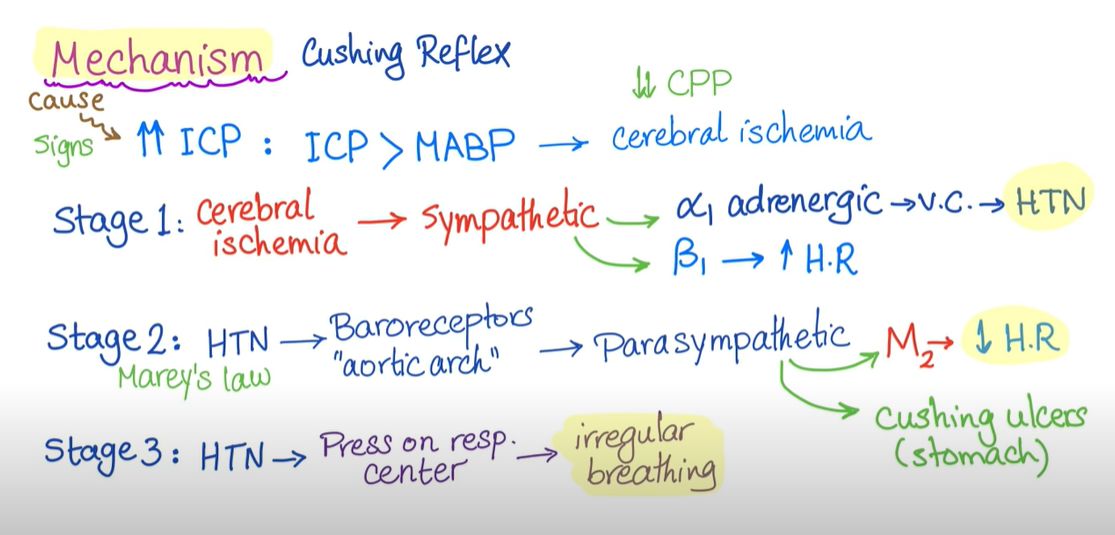 Mechanism Cushing Reflex
cause
↓↓ CPP
Signs ↑↑ ICP : ICP > MABP → cerebral ischemia
Stage 1: cerebral ischemia → sympathetic → α₁ adrenergic → v.c. → HTN
β₁ → ↑ H.R
Stage 2: HTN → Baroreceptors "aortic arch" → Parasympathetic → M₂ → ↓ H.R
Marey's law
cushing ulcers
(stomach)
Stage 3: HTN → Press on resp. center → irregular breathing